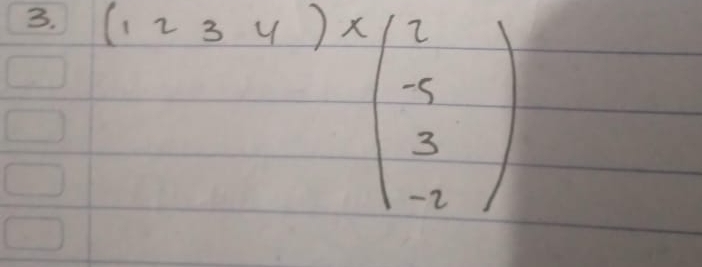 3. (1 2 3 4) × (2
-5
3
-2)